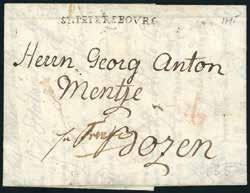 ST. PETERSBOURG
Herrn Georg Anton
Mentze
Bozen